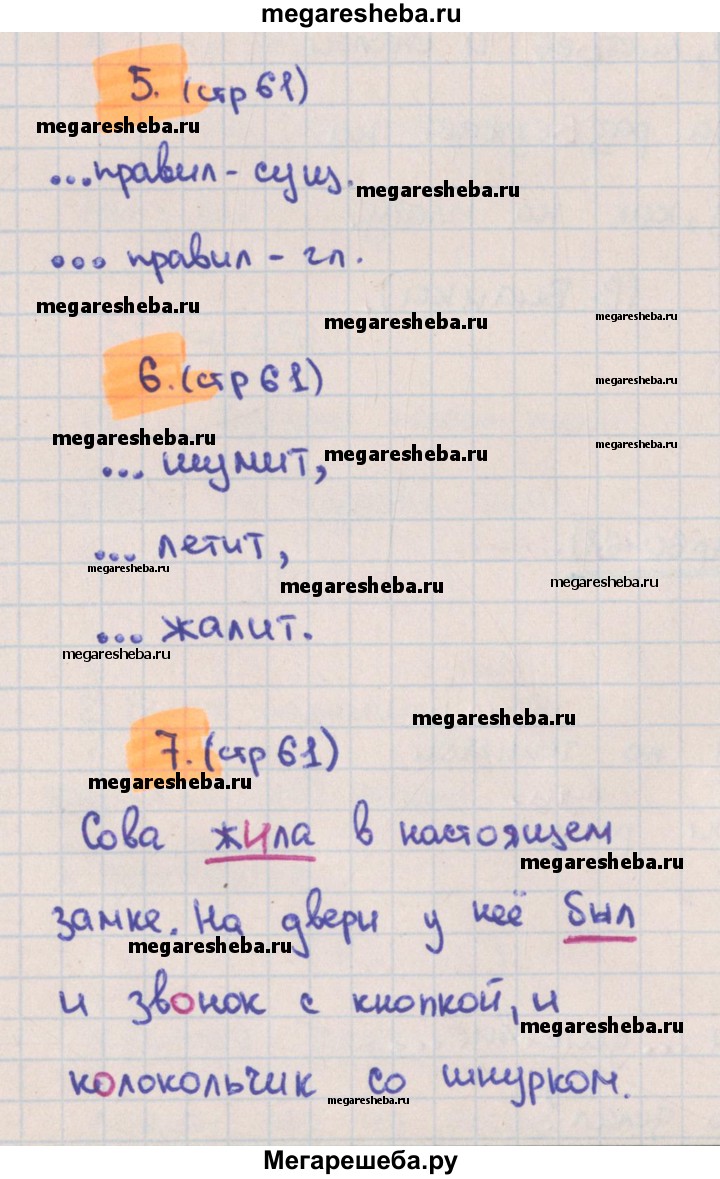 megaresheba.ru
5. (стр 61)
megaresheba.ru
...правил - сущ.
megaresheba.ru
... правил - гл.
megaresheba.ru
megaresheba.ru
megaresheba.ru
6. (стр 61)
megaresheba.ru
megaresheba.ru
megaresheba.ru
megaresheba.ru
... шумит,
... летит,
megaresheba.ru
megaresheba.ru
megaresheba.ru
... жалит.
megaresheba.ru
megaresheba.ru
7. (стр 61)
megaresheba.ru
Сова жила в настоящем
megaresheba.ru
замке. На двери у неё был
megaresheba.ru
и звонок с кнопкой, и
megaresheba.ru
колокольчик со шнурком.
megaresheba.ru
Мегарешеба.ру